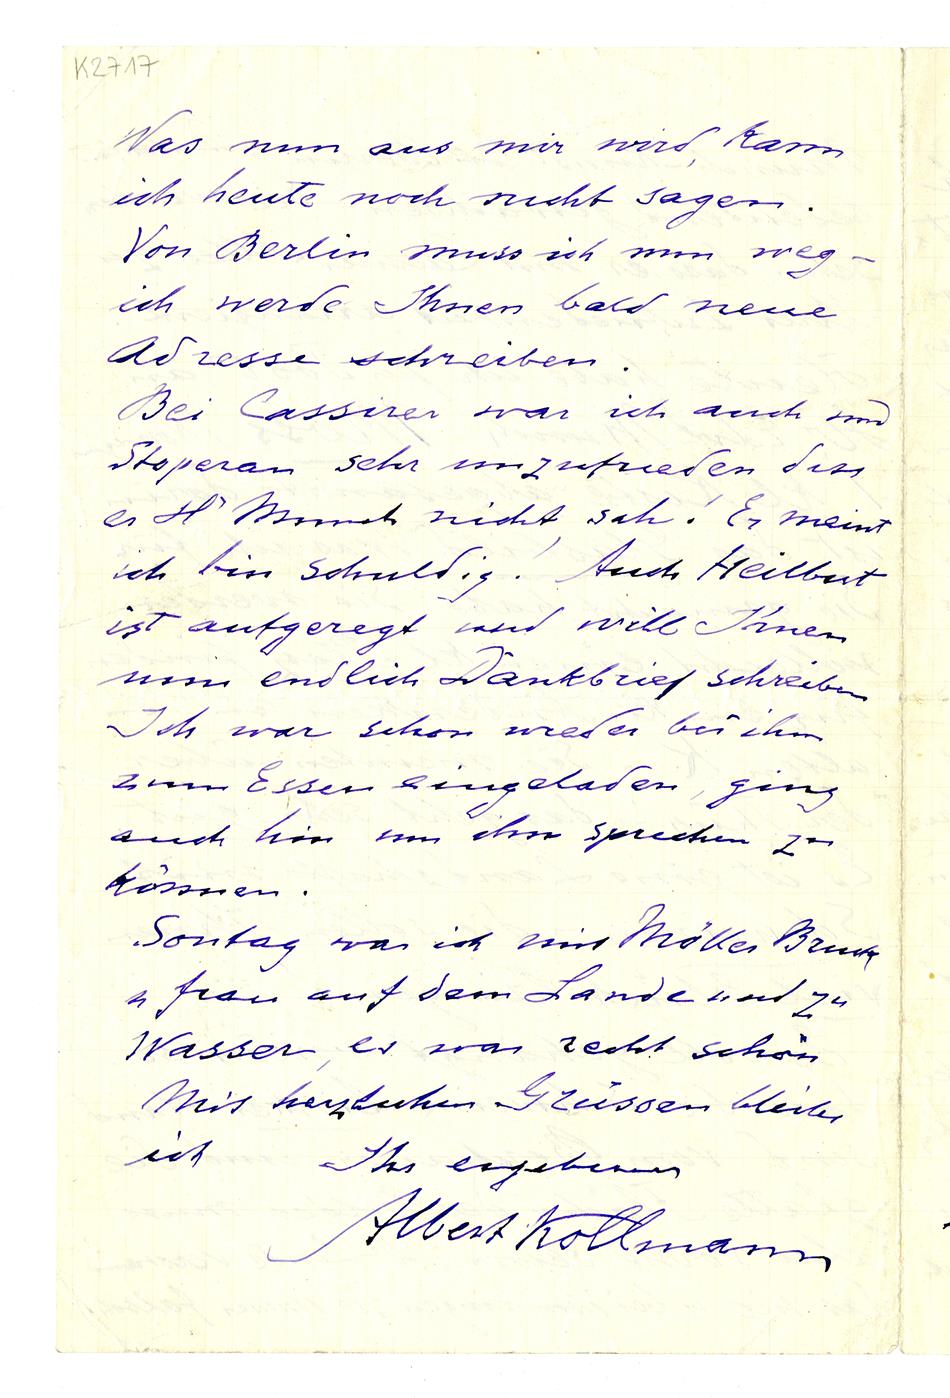 K2717
Was nun aus mir wird, kann
ich heute noch nicht sagen.
Von Berlin muss ich nun weg -
ich werde Ihnen bald neue
Adresse schreiben.
Bei Cassirer war ich auch und
Stoperan sehr unzufrieden dass
er H Munch nicht sah! Er meint
ich bin schuldig! Auch Heilbut
ist aufgeregt und will Ihnen
nun endlich Dankbrief schreiben
Ich war schon wieder bei ihm
zum Essen eingeladen, ging
auch hin um ihn sprechen zu
können.
Sontag war ich mit Möller Bruck
u frau auf dem Lande und zu
Wasser, es war recht schön
Mit herzlichen Grüssen bleibe
ich Ihr ergebener
Albert Kollmann